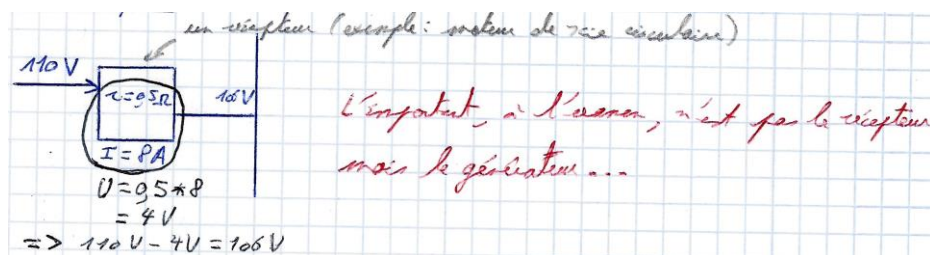 un récepteur (exemple: moteur de scie circulaire)
110 V
r=0,5Ω
106V
I = 8A
U = 0,5*8
= 4 V
=> 110 V - 4V = 106 V
L'important, à l'examen, n'est pas le récepteur
mais le générateur...